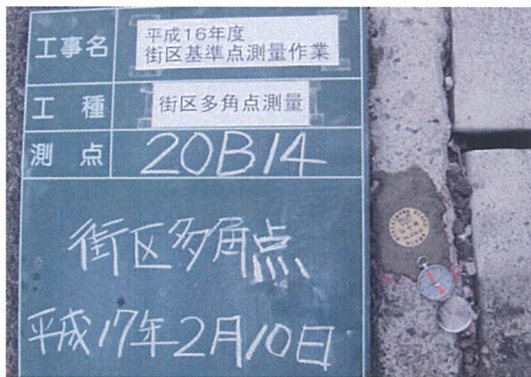 工事名
平成16年度
街区基準点測量作業
工種
街区多角点測量
測点
20B14
街区多角点
平成17年2月10日